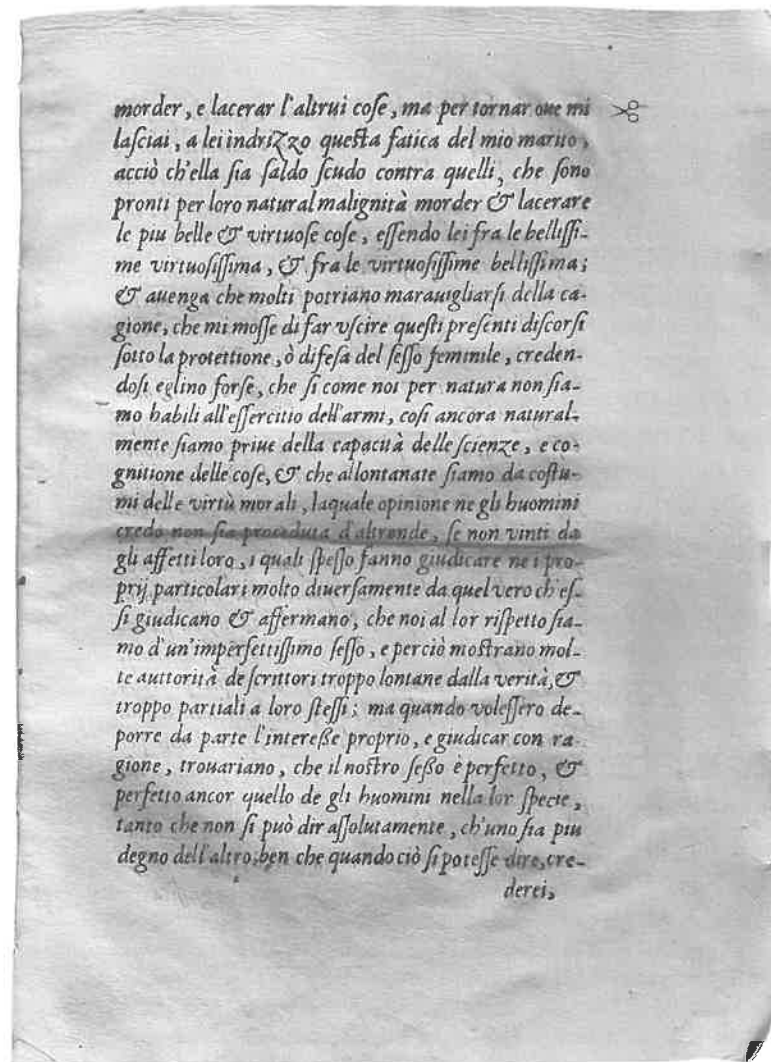 morder, e lacerar l'altrui cose, ma per tornar oue mi
lasciai, a lei indrizzo questa fatica del mio marito,
acciò ch'ella sia saldo scudo contra quelli, che sono
pronti per loro natural malignità morder & lacerare
le piu belle & virtuose cose, essendo lei fra le bellissi-
me virtuosissima, & fra le virtuosissime bellissima;
& auenga che molti potriano marauigliarsi della ca-
gione, che mi mosse di far vscire questi presenti discorsi
sotto la protettione, ò difesa del sesso feminile, creden-
dosi eglino forse, che si come noi per natura non sia-
mo habili all'essercitio dell'armi, cosi ancora natural-
mente siamo priue della capacità delle scienze, e co-
gnitione delle cose, & che allontanate siamo da costu-
mi delle virtù morali, laquale opinione ne gli huomini
credo non sia proceduta d'altronde, se non vinti da
gli affetti loro, i quali spesso fanno giudicare ne i pro-
prij particolari molto diuersamente da quel vero ch'es-
si giudicano & affermano, che noi al lor rispetto sia-
mo d'un'imperfettissimo sesso, e perciò mostrano mol-
te auttorità de scrittori troppo lontane dalla verità, &
troppo partiali a loro stessi; ma quando volessero de-
porre da parte l'interesse proprio, e giudicar con ra-
gione, trouariano, che il nostro sesso è perfetto, &
perfetto ancor quello de gli huomini nella lor specie,
tanto che non si può dir assolutamente, ch'uno sia piu
degno dell'altro, ben che quando ciò si potesse dire, cre-
derei,